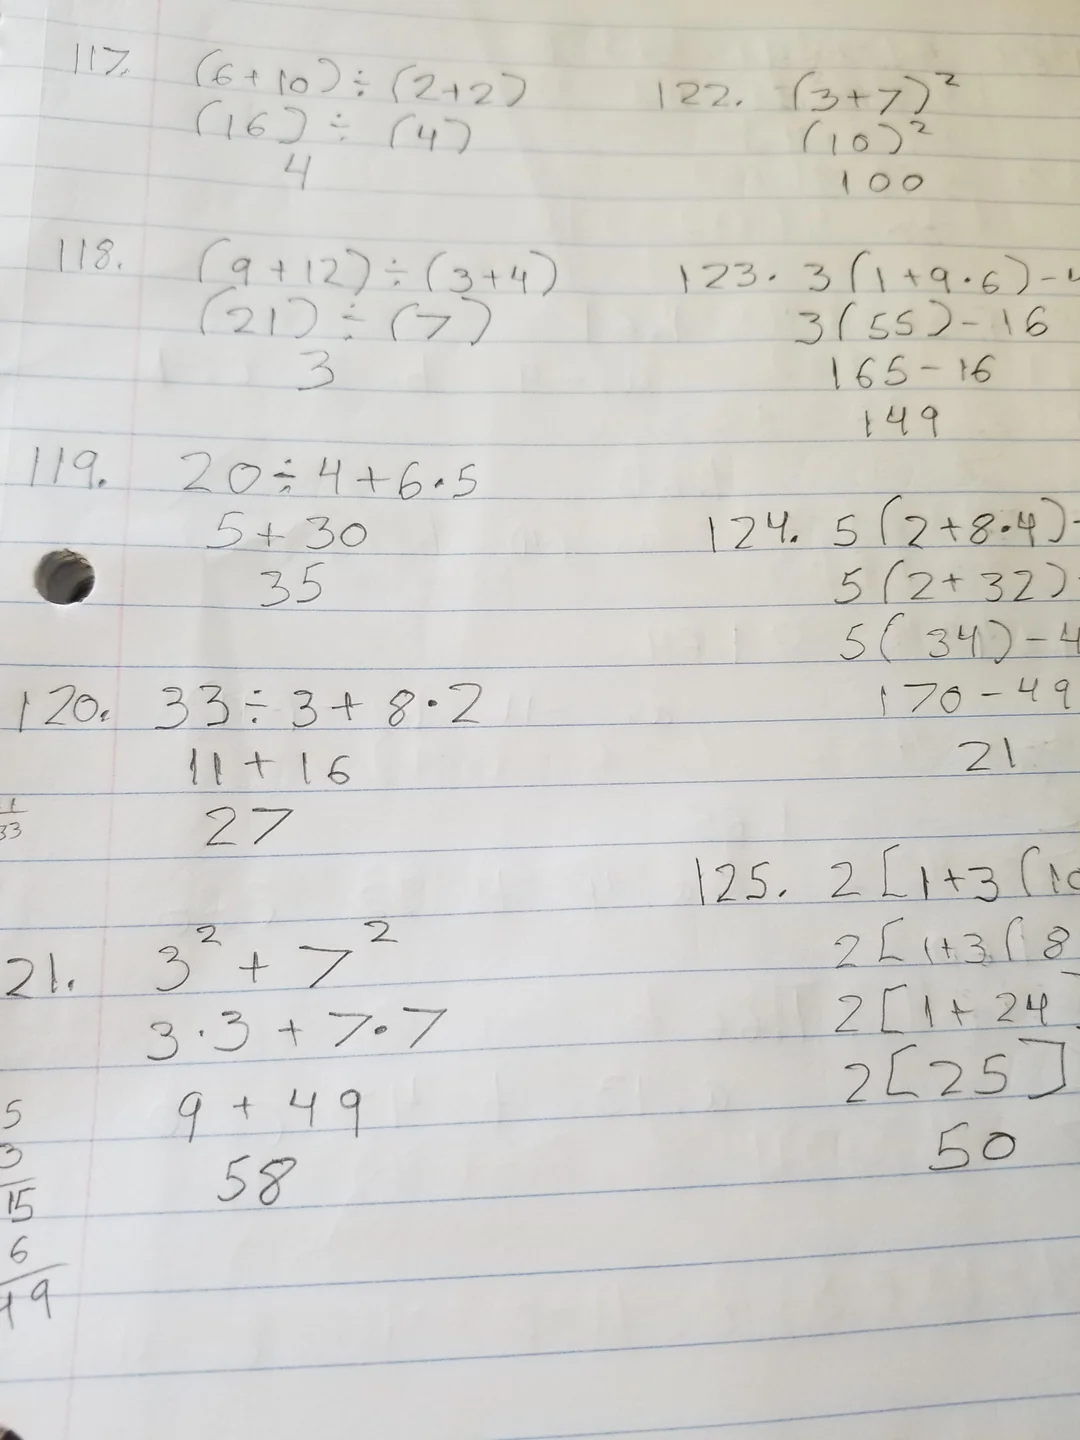 117. (6+10)÷(2+2)
(16) ÷ (4)
4
118. (9+12)÷(3+4)
(21) ÷ (7)
3
119. 20÷4+6·5
5+30
35
120. 33÷3+8·2
11+16
27
1
33
21. 3²+7²
3·3+7·7
9+49
58
5
3
15
6
49
122. (3+7)²
(10)²
100
123. 3(1+9·6)-4
3(55)-16
165-16
149
124. 5(2+8·4)-
5(2+32)
5(34)-4
170-49
21
125. 2[1+3(10
2[1+3(8
2[1+24]
2[25]
50